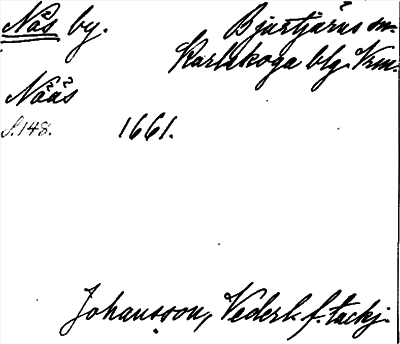 Nås by. Bjurtjärns sn.
Karlskoga blg. Vrm.
Nåås
s. 148. 1661.
Johansson, Vederl. f. tackj.